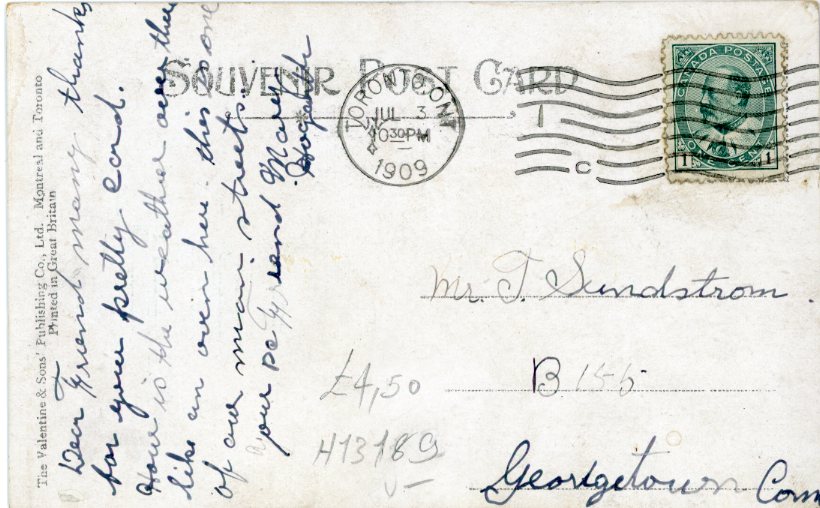 SOUVENIR POST CARD
The Valentine & Sons' Publishing Co., Ltd. Montreal and Toronto
Printed in Great Britain
Dear Friend many thanks
for your pretty card.
How is the weather over there
like an oven here. this is one
of our main streets.
your Pc Friend Mary
TORONTO, ONT
JUL 3
10 30 PM
1909
C
CANADA POSTAGE
1 ONE CENT 1
Mr. T. Sundstrom.
B 155
Georgetown Conn
£4,50
H13189